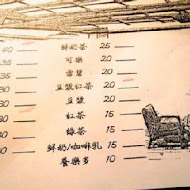 40 鮮奶茶 25
35 可樂 20
35 雪碧 20
35 豆漿紅茶 20
30 豆漿 20
30 紅茶 15
30 綠茶 15
鮮奶/咖啡乳 15
養樂多 10